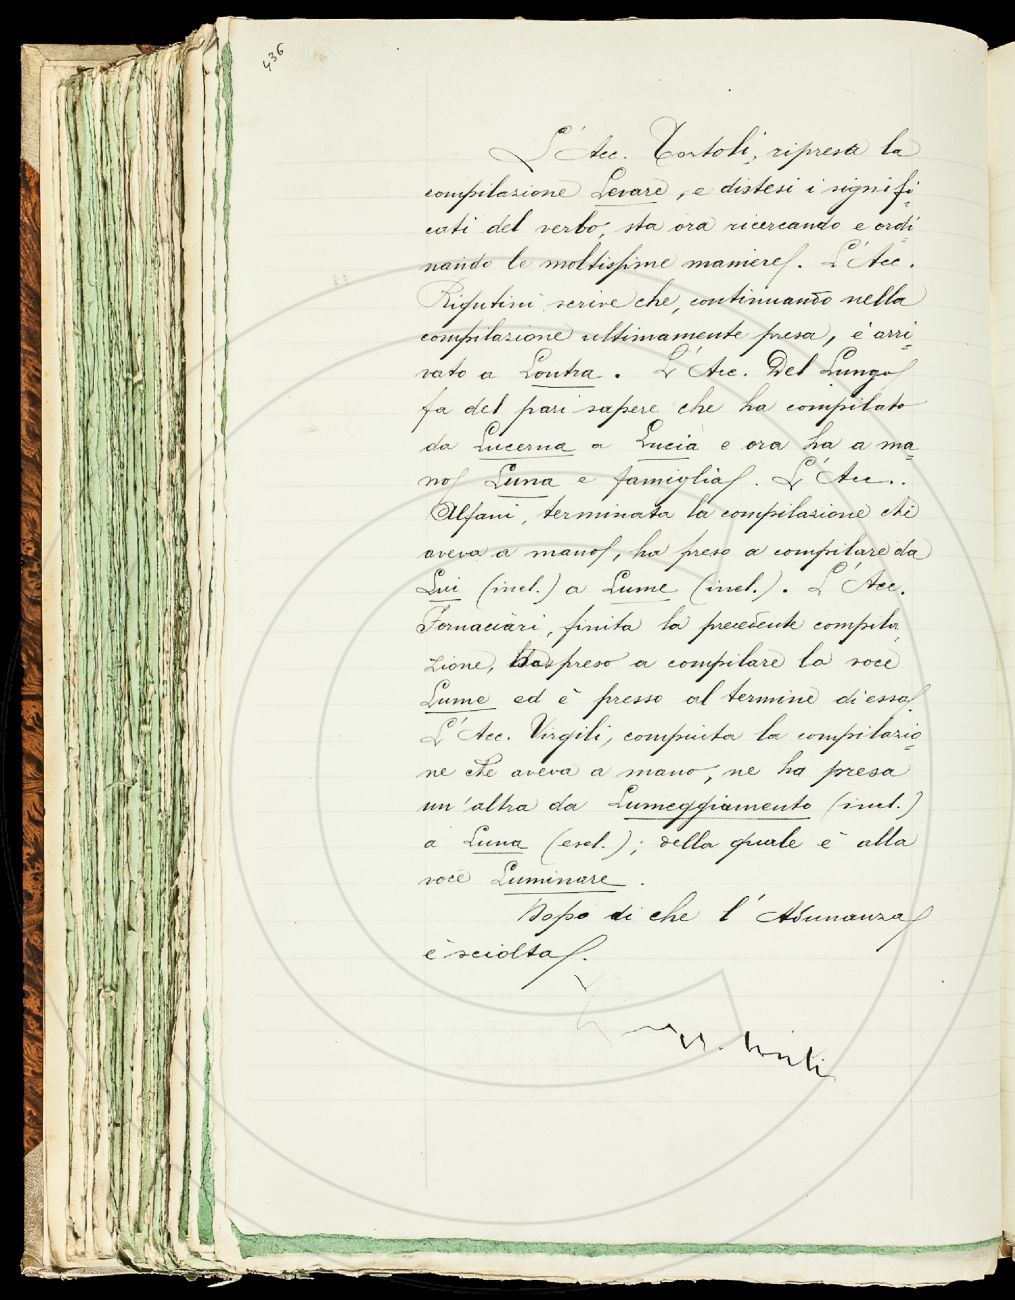 436
L'Acc. Tortoli, ripresa la
compilazione Levare, e distesi i signifi-
cati del verbo, sta ora ricercando e ordi-
nando le moltissime maniere. L'Acc.
Rigutini scrive che, continuando nella
compilazione ultimamente presa, è arri-
vato a Lontra. L'Acc. Del Lungo
fa del pari sapere che ha compilato
da Lucerna a Lucia e ora ha a ma-
no Luna e famiglia. L'Acc.
Alfani, terminata la compilazione che
aveva a mano, ha preso a compilare da
Lui (incl.) a Lume (incl.). L'Acc.
Fornaciari, finita la precedente compila
zione, ha preso a compilare la voce
Lume ed è presso al termine di essa.
L'Acc. Virgili, compiuta la compilazio-
ne che aveva a mano, ne ha presa
un'altra da Lumeggiamento (incl.)
a Luna (escl.); della quale è alla
voce Luminare.
Dopo di che l'Adunanza
è sciolta.